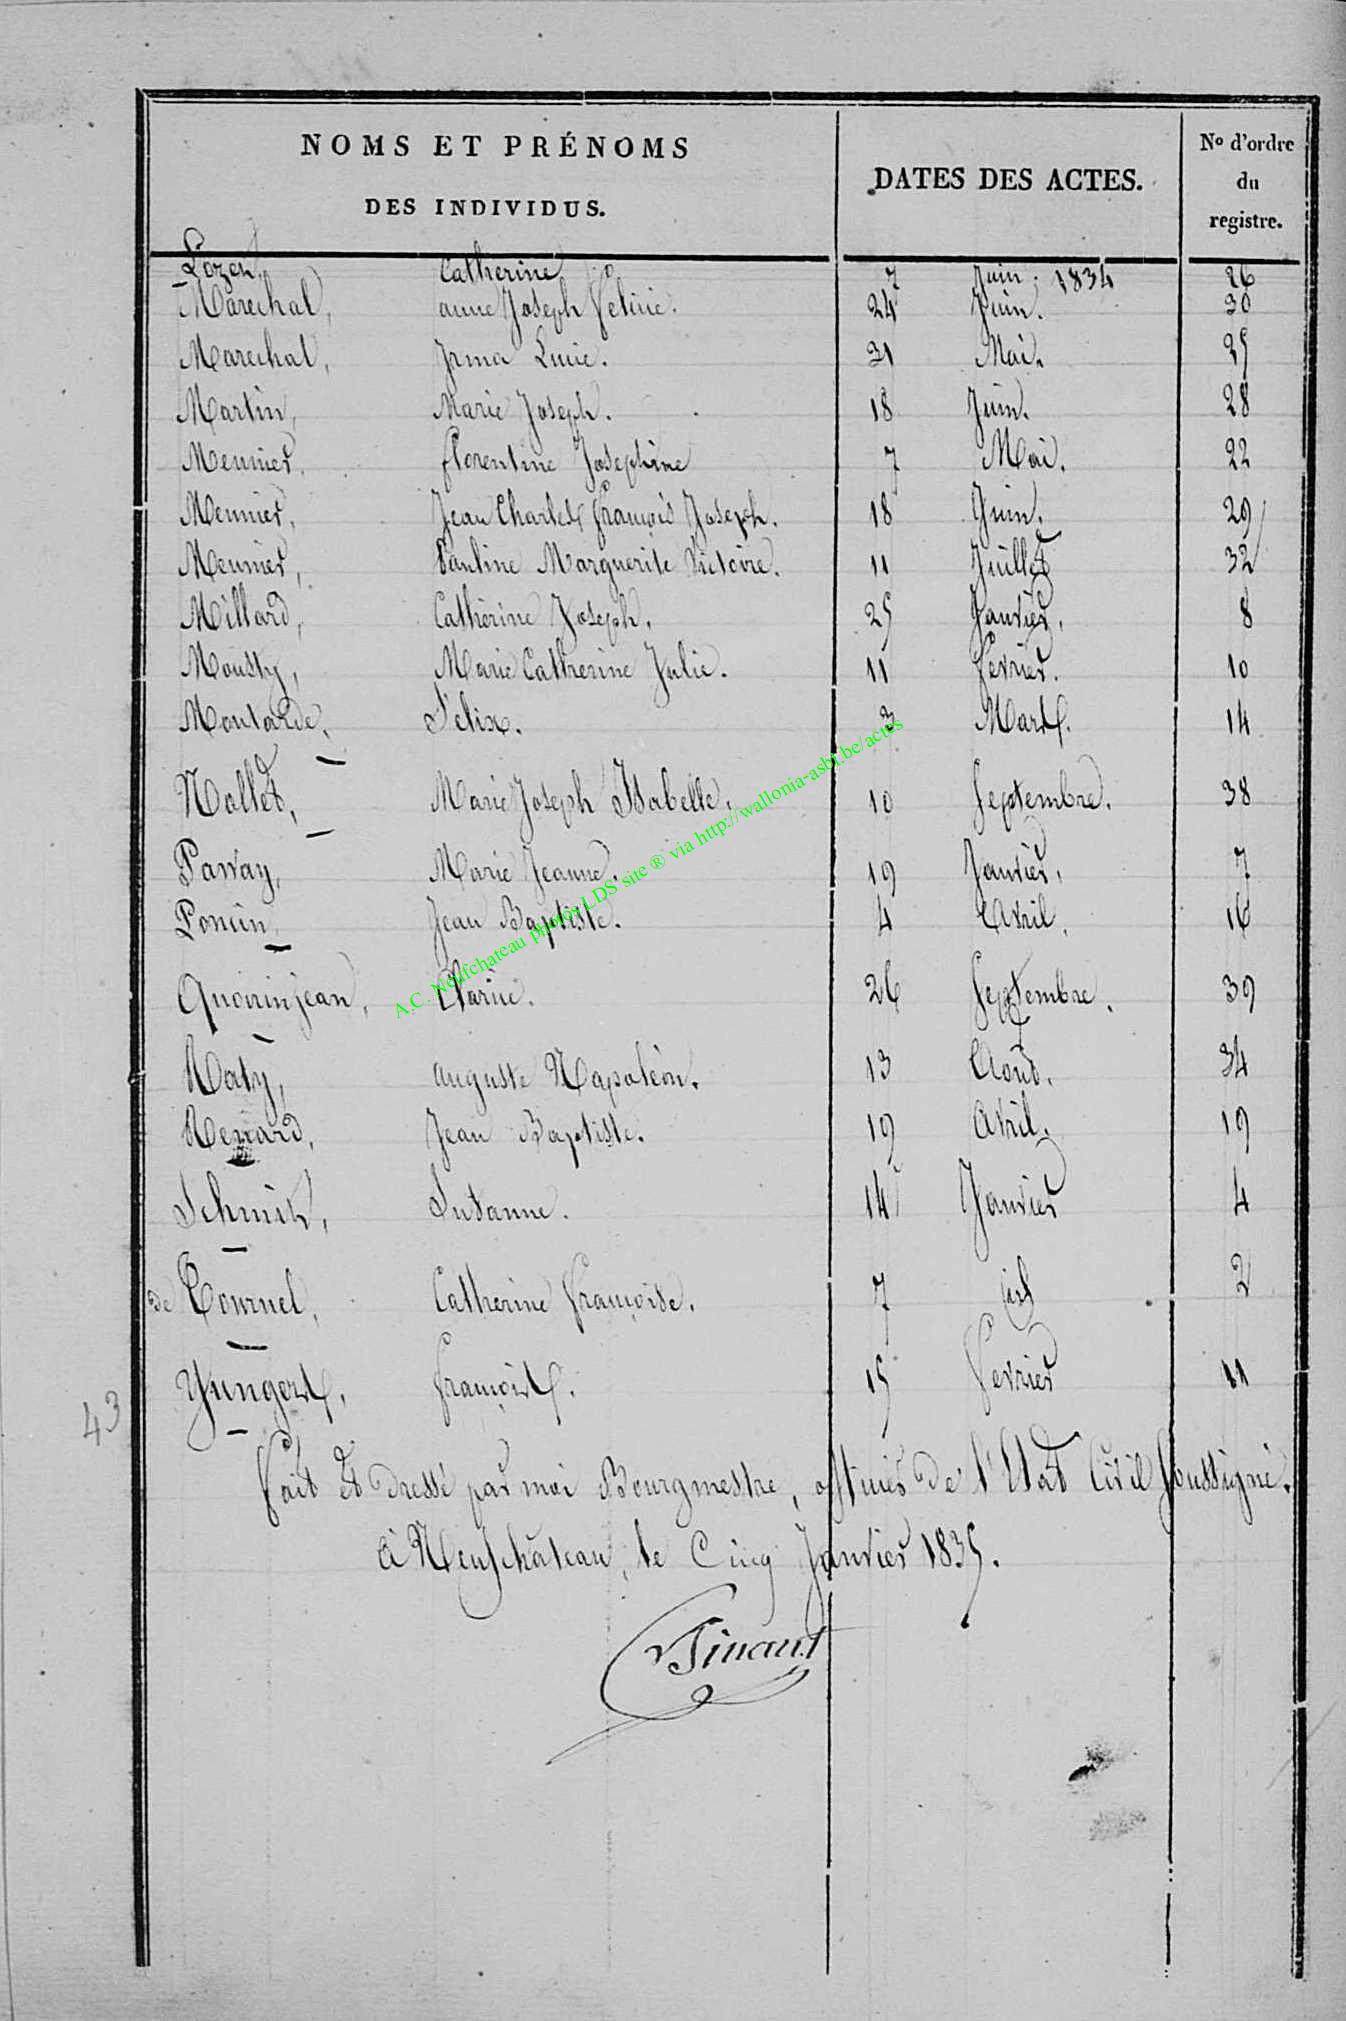 NOMS ET PRÉNOMS
DES INDIVIDUS.
DATES DES ACTES.
No d'ordre
du
registre.
Lozet, Catherine 7 Juin. 1834 26
Marechal, anne Joseph Felicie. 24 Juin. 30
Marechal, Irma Lucie. 31 Mai. 25
Martin, Marie Joseph. 18 Juin. 28
Meunier, florentine Josephine 7 Mai. 22
Meunier, Jean Charles François Joseph. 18 Juin. 29
Meunier, Pauline Marguerite Victoire. 11 Juillet 32
Millard, Cathérine Joseph. 25 Janvier. 8
Mousty, Marie Catherine Julie. 11 fevrier. 10
Moutarde, Felix. 3 Mars. 14
Nollet, Marie Joseph Isabelle. 10 Septembre. 38
Parvay, Marie Jeanne. 19 Janvier. 7
Poncin, Jean Baptiste. 4 Avril. 16
Quoirinjean, Clarice. 26 Septembre. 39
Raty, auguste Napoléon. 13 Aout. 34
Renard, Jean Baptiste. 19 Avril. 19
Schmit, Susanne. 14 Janvier 4
de Tournel, Catherine françoise. 7 id 2
Yungers, françois. 15 Fevrier 11
43
Fait et dressé par moi Bourgmestre, officier de l'Etat Civil Soussigné.
à Neufchâteau, le Cinq Janvier 1835.
A.C. Neufchateau photos LDS site ® via http://wallonia-asbl.be/actes